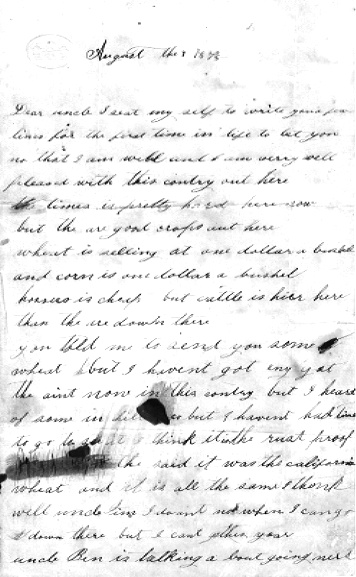 August the 8 1878
Dear uncle I seat my self to write you a few
lines for the first time in life to let you
no that I am well and I am verry well
pleased with this contry out here
times is pretty hard here now
but the are good crops out here
wheat is selling at one dollar a bushel
and corn is one dollar a bushel
horses is cheap but cattle is hier here
than the are down there
you told me to send you some
wheat but I havent got eny yet
the aint now in this contry but I heard
of some in but I havent had time
to go to I think it the rust proof
the said it was the california
wheat and it is all the same I think
well uncle Jim I dount no when I can go
down there but I cant this year
uncle Ben is talking a bout going next